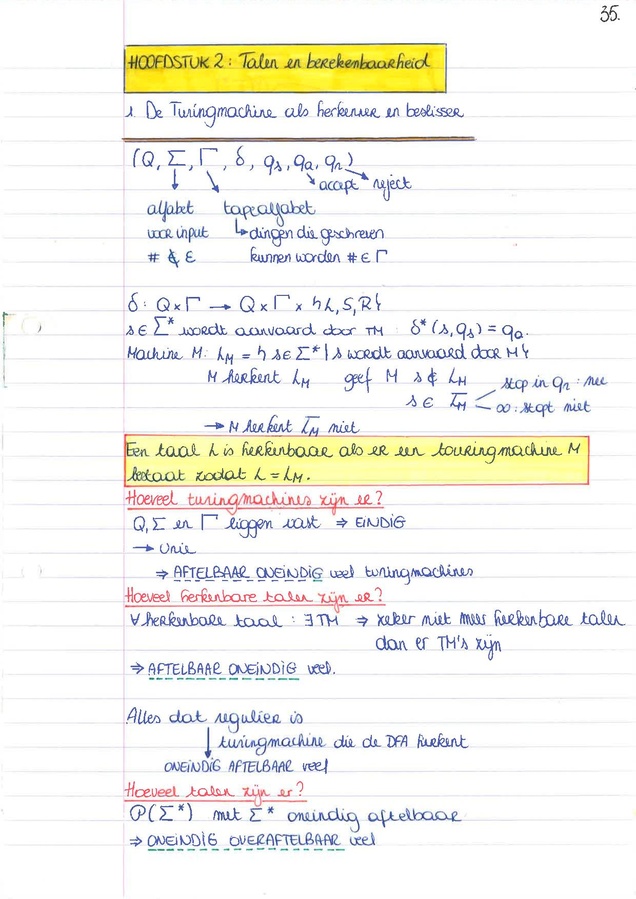 35.
HOOFDSTUK 2: Talen en berekenbaarheid
1. De Turingmachine als herkenner en beslisser
(Q, Σ, Γ, δ, qs, qa, qr)
accept reject
alfabet tape alfabet
voor input ↳ dingen die geschreven
# ∉ Σ kunnen worden # ∈ Γ
δ: Q x Γ → Q x Γ x {L, S, R}
s ∈ Σ* wordt aanvaard door TM: δ*(s, qs) = qa.
Machine M: LM = { s ∈ Σ* | s wordt aanvaard door M}
M herkent LM geef M s ∉ LM
stop in qr: nee
s ∈ L̅M
∞: stopt niet
→ M herkent L̅M niet
Een taal L is herkenbaar als er een touringmachine M
bestaat zodat L = LM.
Hoeveel turingmachines zijn er?
Q, Σ en Γ liggen vast ⇒ EINDIG
→ Unie
⇒ AFTELBAAR ONEINDIG veel turingmachines
Hoeveel herkenbare talen zijn er?
∀ herkenbare taal: ∃ TM ⇒ zeker niet meer herkenbare talen
dan er TM's zijn
⇒ AFTELBAAR ONEINDIG veel.
Alles dat regulier is
turingmachine die de DFA herkent
ONEINDIG AFTELBAAR veel
Hoeveel talen zijn er?
P(Σ*) met Σ* oneindig aftelbaar
⇒ ONEINDIG OVERAFTELBAAR veel